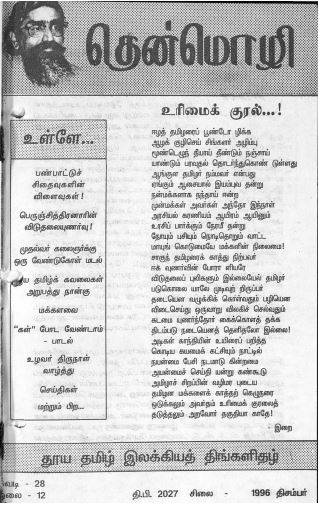 தென்மொழி
உரிமைக் குரல்...!
உள்ளே...
பண்பாட்டுச்
சிதைவுகளின்
விளைவுகள்!
பெருஞ்சித்திரனாரின்
விடுதலையுணர்வு!
முதல்வர் கலைஞர்க்கு
ஒரு வேண்டுகோள் மடல்
தூய தமிழ்க் கவலைகள்
அறுபத்து நான்கு
மக்களவை
"கள்" போட வேண்டாம்
- பாடல்
உழவர் திருநாள்
வாழ்த்து
செய்திகள்
மற்றும் பிற...
ஈழத் தமிழரைப் பூண்டோ டழிக்க
ஆழக் குழிசெய் சிங்களர் அழிம்பு
மூண்டெழுந் தீயாய் தீண்டும் நஞ்சாய்
யாண்டும் பரவுதல் தொடர்ந்துகொண் டுள்ளது
ஆங்குள தமிழர் நம்மவர் என்பது
ஏங்கும் ஆசையால் இயம்புவ தன்று
நன்மக்களாக நந்தாய் ஈன்ற
முன்மக்கள் அவர்கள் அந்தோ இந்நாள்
அரசியல் கரணியம் ஆயிரம் ஆயினும்
உரசிப் பார்க்கும் நேரமீ தன்று
நோயும் பசியும் நெடிதொறும் வாட்ட
மாயுங் கொடுமையே மக்களின் நிலைமை!
சாகுந் தமிழரைக் காத்து நிற்பவர்
ஈக வுணர்வின் போரா ளியரே
விடுதலைப் புலிகளும் இல்லையேல் தமிழர்
படுகொலை யாலே முடிவுற் றிருப்பர்
தடையென வழுக்கிக் கொள்வதும் பழியென
விடைசெய்து ஒருவாறு விலகிச் செல்வதும்
கடமை யுணர்ந்தோர் கைக்கொளத் தக்க
திடம்படு நடையெனத் தெளிதலோ இல்லை!
அடிகள் காந்தியின் உயிரைப் பறித்த
கொடிய கயமைக் கட்சியும் நாட்டில்
நயன்மை பேசி நடமாடு கின்றமை
அயன்மைச் செய்தி யன்று கண்கூடு
அமிழாச் சிறப்பின் வழிமர புடைய
தமிழன மக்களைக் காத்தற் கெழுநரை
ஒடுக்கலும் அவர்தம் உரிமைக் குரலைத்
தடுத்தலும் அறவோர் தகுதியா காதே!
- இறை
தூய தமிழ் இலக்கியத் திங்களிதழ்
சுவடி - 28
ஓலை - 12
தி.பி. 2027 சிலை - 1996 திசம்பர்